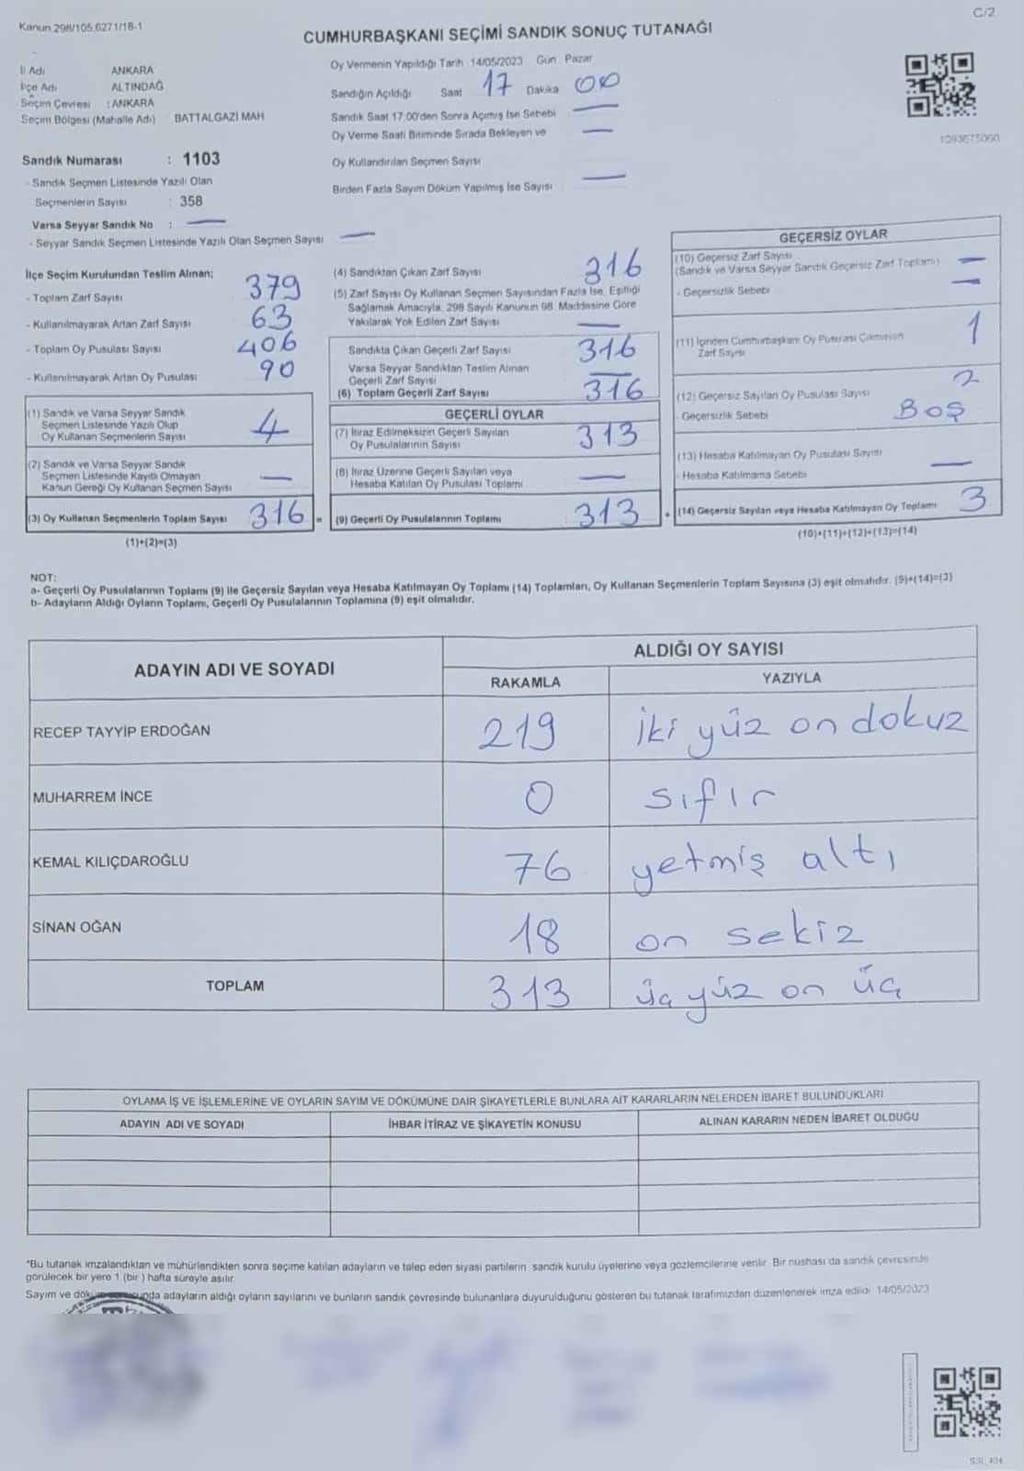 Kanun 298/105,6271/18-1
C/2
CUMHURBAŞKANI SEÇİMİ SANDIK SONUÇ TUTANAĞI
İl Adı ANKARA
İlçe Adı ALTINDAĞ
Seçim Çevresi : ANKARA
Seçim Bölgesi (Mahalle Adı) BATTALGAZİ MAH
Oy Vermenin Yapıldığı Tarih 14/05/2023 Gün Pazar
Sandığın Açıldığı Saat 17 Dakika 00
Sandık Saat 17.00'den Sonra Açılmış İse Sebebi —
Oy Verme Saati Bitiminde Sırada Bekleyen ve —
Oy Kullandırılan Seçmen Sayısı
Birden Fazla Sayım Döküm Yapılmış İse Sayısı —
Sandık Numarası : 1103
- Sandık Seçmen Listesinde Yazılı Olan
Seçmenlerin Sayısı : 358
Varsa Seyyar Sandık No : —
- Seyyar Sandık Seçmen Listesinde Yazılı Olan Seçmen Sayısı —
İlçe Seçim Kurulundan Teslim Alınan;
- Toplam Zarf Sayısı 379
- Kullanılmayarak Artan Zarf Sayısı 63
- Toplam Oy Pusulası Sayısı 406
- Kullanılmayarak Artan Oy Pusulası 90
(1) Sandık ve Varsa Seyyar Sandık
Seçmen Listesinde Yazılı Olup
Oy Kullanan Seçmenlerin Sayısı 4
(2) Sandık ve Varsa Seyyar Sandık
Seçmen Listesinde Kayıtlı Olmayan
Kanun Gereği Oy Kullanan Seçmen Sayısı —
(3) Oy Kullanan Seçmenlerin Toplam Sayısı 316 =
(1)+(2)=(3)
(4) Sandıktan Çıkan Zarf Sayısı 316
(5) Zarf Sayısı Oy Kullanan Seçmen Sayısından Fazla İse, Eşitliği
Sağlamak Amacıyla, 298 Sayılı Kanunun 98. Maddesine Göre
Yakılarak Yok Edilen Zarf Sayısı —
Sandıkta Çıkan Geçerli Zarf Sayısı 316
Varsa Seyyar Sandıktan Teslim Alınan
Geçerli Zarf Sayısı —
(6) Toplam Geçerli Zarf Sayısı 316
GEÇERLİ OYLAR
(7) İtiraz Edilmeksizin Geçerli Sayılan
Oy Pusulalarının Sayısı 313
(8) İtiraz Üzerine Geçerli Sayılan veya
Hesaba Katılan Oy Pusulası Toplamı —
(9) Geçerli Oy Pusulalarının Toplamı 313 +
GEÇERSİZ OYLAR
(10) Geçersiz Zarf Sayısı
(Sandık ve Varsa Seyyar Sandık Geçersiz Zarf Toplamı) —
- Geçersizlik Sebebi —
(11) İçinden Cumhurbaşkanı Oy Pusulası Çıkmayan
Zarf Sayısı 1
(12) Geçersiz Sayılan Oy Pusulası Sayısı 2
- Geçersizlik Sebebi BOŞ
(13) Hesaba Katılmayan Oy Pusulası Sayısı —
- Hesaba Katılmama Sebebi
(14) Geçersiz Sayılan veya Hesaba Katılmayan Oy Toplamı 3
(10)+(11)+(12)+(13)=(14)
NOT:
a- Geçerli Oy Pusulalarının Toplamı (9) ile Geçersiz Sayılan veya Hesaba Katılmayan Oy Toplamı (14) Toplamları, Oy Kullanan Seçmenlerin Toplam Sayısına (3) eşit olmalıdır. (9)+(14)=(3)
b- Adayların Aldığı Oyların Toplamı, Geçerli Oy Pusulalarının Toplamına (9) eşit olmalıdır.
ADAYIN ADI VE SOYADI
ALDIĞI OY SAYISI
RAKAMLA YAZIYLA
RECEP TAYYİP ERDOĞAN 219 iki yüz on dokuz
MUHARREM İNCE 0 sıfır
KEMAL KILIÇDAROĞLU 76 yetmiş altı
SİNAN OĞAN 18 on sekiz
TOPLAM 313 üç yüz on üç
OYLAMA İŞ VE İŞLEMLERİNE VE OYLARIN SAYIM VE DÖKÜMÜNE DAİR ŞİKAYETLERLE BUNLARA AİT KARARLARIN NELERDEN İBARET BULUNDUKLARI
ADAYIN ADI VE SOYADI İHBAR İTİRAZ VE ŞİKAYETİN KONUSU ALINAN KARARIN NEDEN İBARET OLDUĞU
*Bu tutanak imzalandıktan ve mühürlendikten sonra seçime katılan adayların ve talep eden siyasi partilerin sandık kurulu üyelerine veya gözlemcilerine verilir. Bir nüshası da sandık çevresinde
görülecek bir yere 1 (bir) hafta süreyle asılır.
Sayım ve adayların aldığı oyların sayılarını ve bunların sandık çevresinde bulunanlara duyurulduğunu gösteren bu tutanak tarafımızdan düzenlenerek imza edildi 14/05/2023